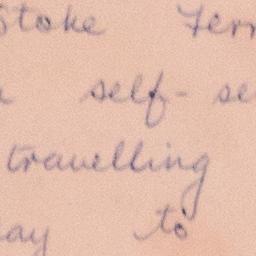 Stoke Ferr
self- se
travelling
ay to